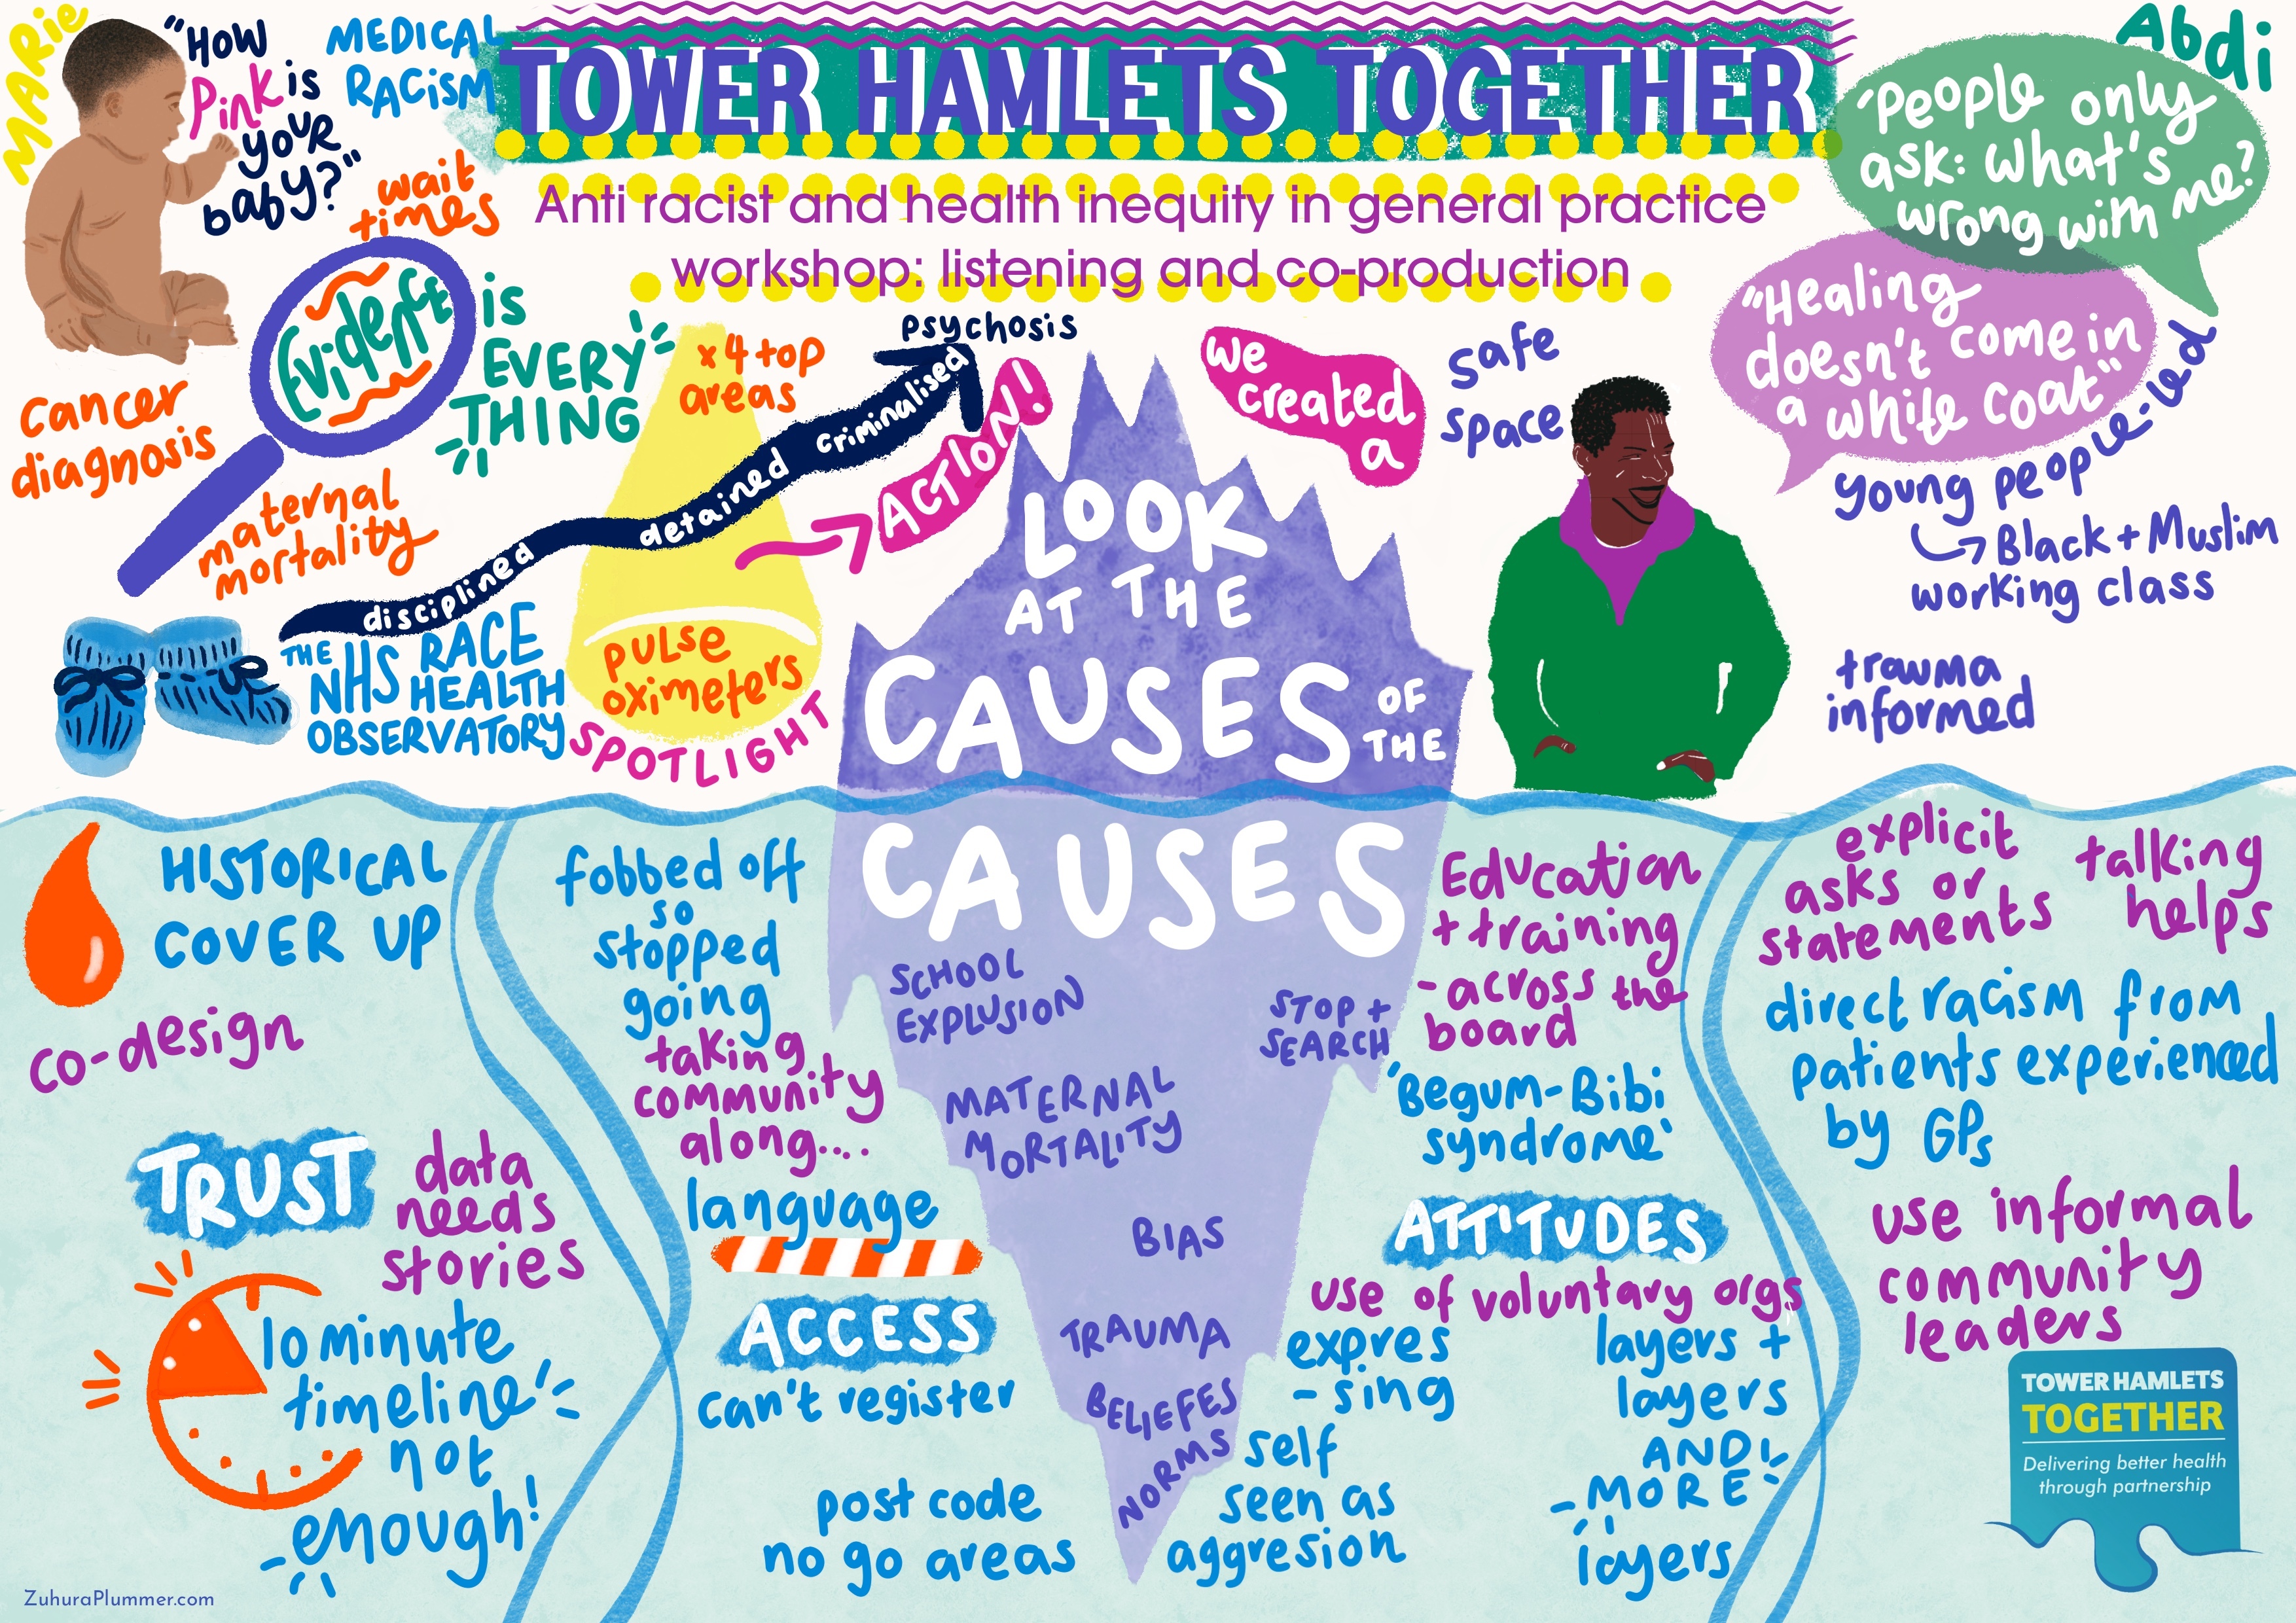 MARie
"HOW
Pink is
your
baby?"
MEDICAL
RACiSM
TOWER HAMLETS TOGETHER
Anti racist and health inequity in general practice
workshop: listening and co-production
Abdi
'People only
ask: what's
wrong with me?
"Healing
doesn't come in
a white coat"
wait
times
Evidence
is
EVERY
THING
cancer
diagnosis
maternal
mortality
x4 top
areas
disciplined
detained
criminalised
psychosis
ACTION!
THE
NHS RACE
HEALTH
OBSERVATORY
pulse
oximeters
SPOTLIGHT
we
created
a
safe
space
young people-led
Black + Muslim
working class
trauma
informed
LOOK
AT THE
CAUSES
OF
THE
CAUSES
SCHOOL
EXPLUSION
STOP +
SEARCH
MATERNAL
MORTALITY
BIAS
TRAUMA
BELIEFES
NORMS
HISTORICAL
COVER UP
co-design
TRUST
data
needs
stories
10 minute
timeline
not
enough!
fobbed off
so
stopped
going
taking
community
along....
language
ACCESS
can't register
post code
no go areas
Education
+ training
- across the
board
'Begum-Bibi
syndrome'
ATTITUDES
use of voluntary orgs
expres
- sing
self
seen as
aggresion
layers +
layers
AND
MORE
layers
explicit
asks or
statements
talking
helps
direct racism from
patients experienced
by GPs
use informal
community
leaders
TOWER HAMLETS
TOGETHER
Delivering better health
through partnership
ZuhuraPlummer.com